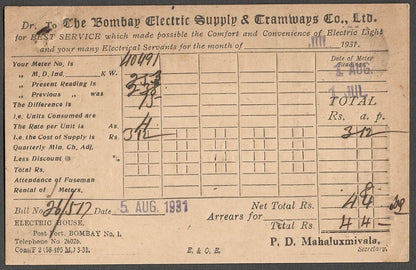 Dr. To The Bombay Electric Supply & Tramways Co., Ltd.
for BEST SERVICE which made possible the Comfort and Convenience of Electric Light
and your many Electrical Servants for the month of JUL 1931.
Your Meter No. is 40491 Date of Meter
„ M. D. Ind. K W.
„ Present Reading is 1 AUG.
„ Previous „ was 1 JUL
The Difference is 15 TOTAL
i.e. Units Consumed are
The Rate per Unit is As. 4 Rs. a. p.
i.e. the Cost of Supply is Rs. 3 12 3 12
Quarterly Min. Ch. Adj.
Less Discount
Total Rs.
Attendance of Fuseman
Rental of Meters.
Bill No. 26/517 Date 5 AUG. 1931 Net Total Rs.
ELECTRIC HOUSE, Arrears for
Post Fort, BOMBAY No. 1. Total Rs.
Telephone No. 26026. P. D. Mahaluxmivala,
E. & O. E. Secretary.